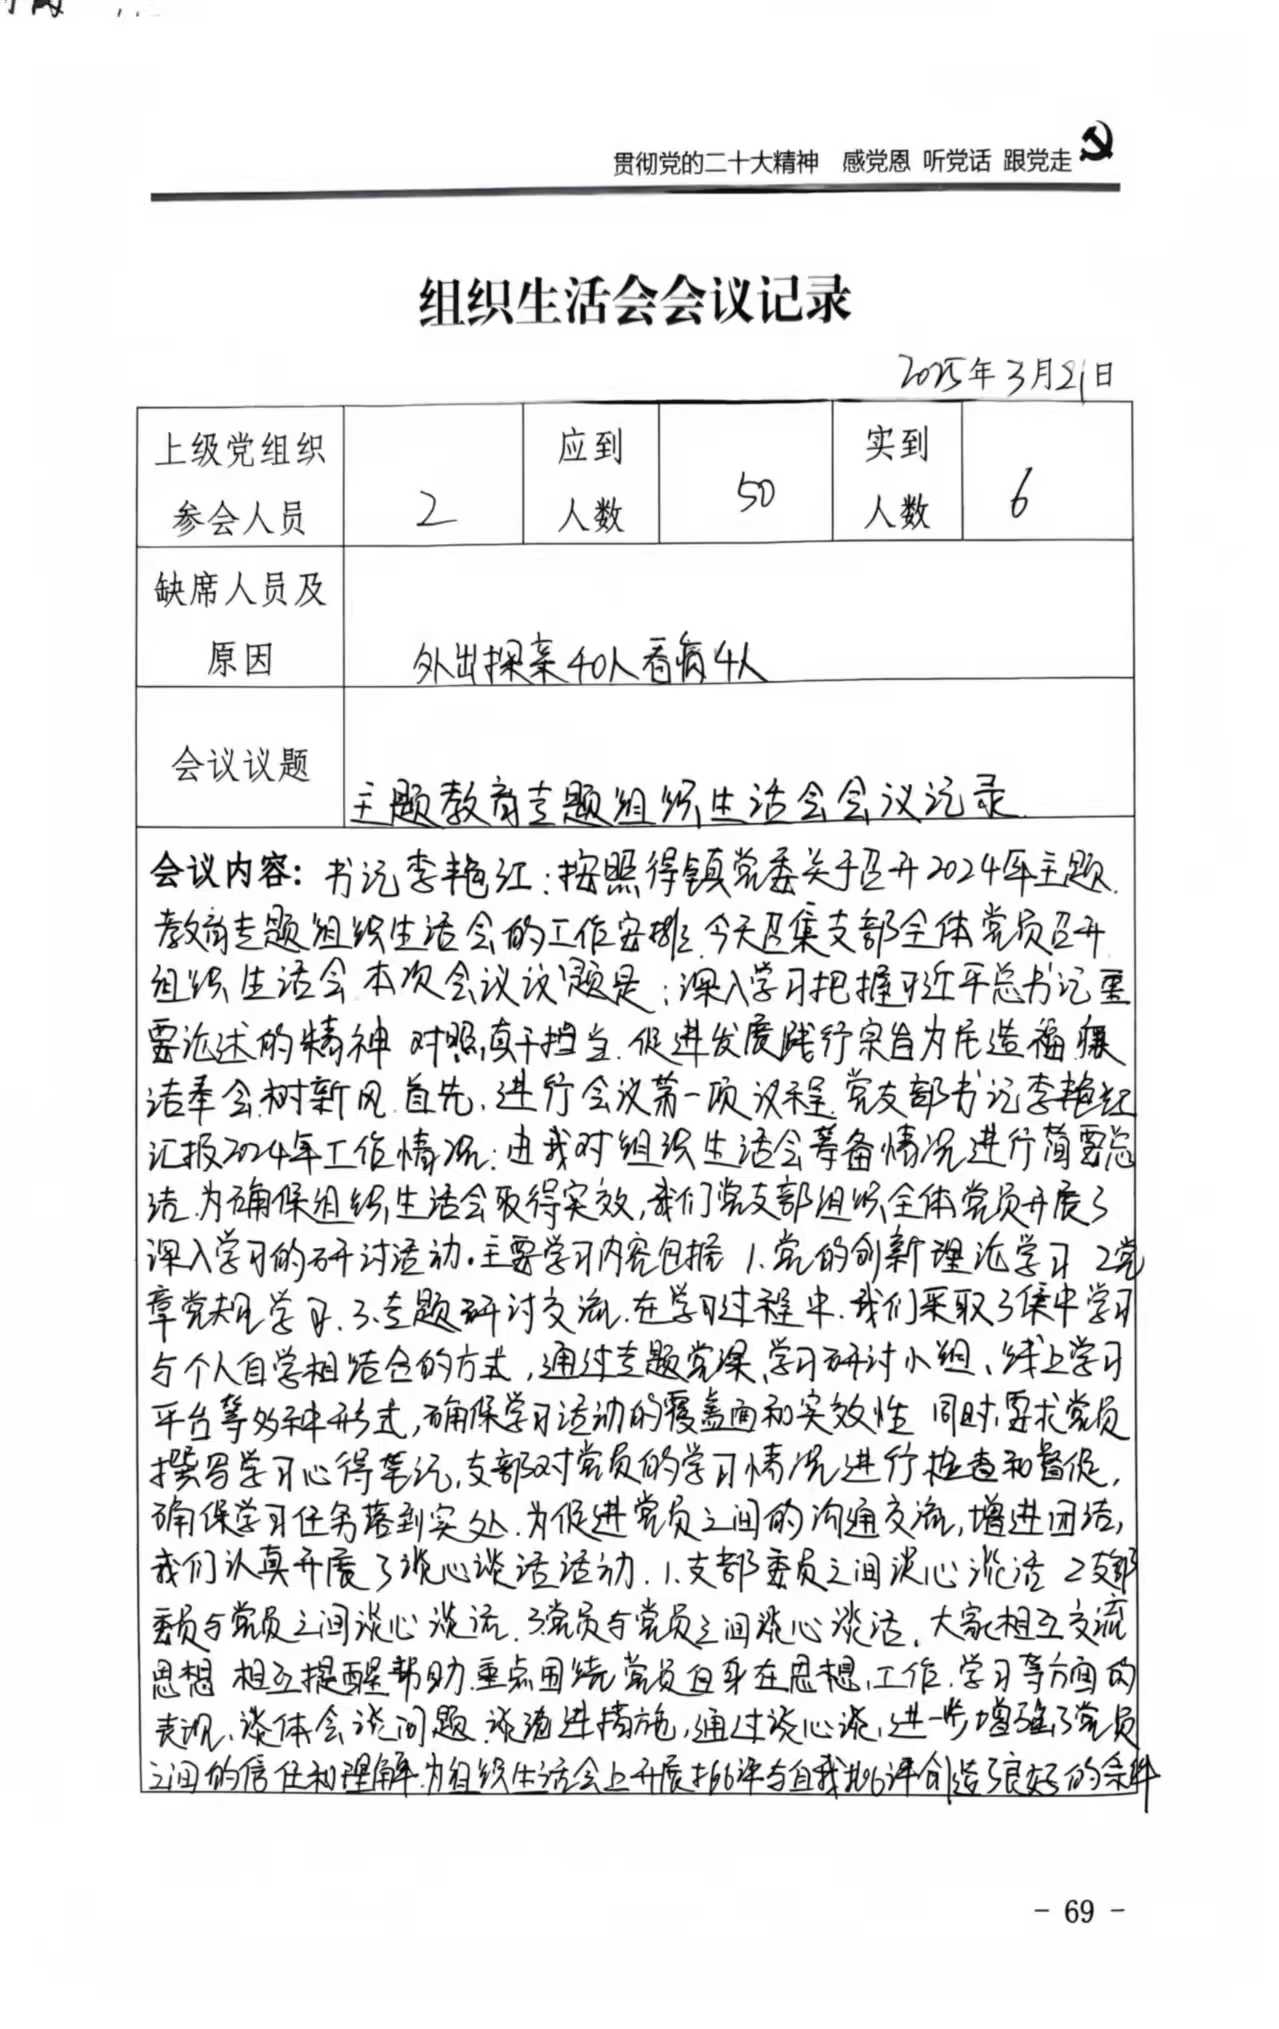 贯彻党的二十大精神 感党恩 听党话 跟党走
组织生活会会议记录
2025年3月21日
上级党组织参会人员 2 应到人数 50 实到人数 6
缺席人员及原因 外出探亲40人看病4人
会议议题 主题教育专题组织生活会会议记录
会议内容：书记李艳红：按照得镇党委关于召开2024年主题
教育专题组织生活会的工作安排，今天召集支部全体党员召开
组织生活会本次会议议题是：深入学习把握习近平总书记重
要论述的精神 对照真干担当.促进发展践行宗旨为民造福.廉
洁奉会.树新风.首先，进行会议第一项议程.党支部书记李艳红
汇报2024年工作情况：由我对组织生活会筹备情况进行简要总
结.为确保组织生活会取得实效，我们党支部组织全体党员开展了
深入学习的研讨活动。主要学习内容包括 1.党的创新理论学习 2党
章党规学习.3.专题研讨交流.在学习过程中.我们采取了集中学习
与个人自学相结合的方式，通过专题党课、学习研讨小组、线上学习
平台等多种形式，确保学习活动的覆盖面和实效性 同时，要求党员
撰写学习心得笔记，支部对党员的学习情况进行检查和督促，
确保学习任务落到实处.为促进党员之间的沟通交流，增进团结，
我们认真开展了谈心谈话活动.1.支部委员之间谈心谈话 2支部
委员与党员之间谈心谈话.3.党员与党员之间谈心谈话.大家相互交流
思想 相互提醒帮助.重点围绕党员自身在思想.工作.学习等方面的
表现、谈体会谈问题.谈改进措施，通过谈心谈，进一步增强了党员
之间的信任和理解.为组织生活会上开展批评与自我批评创造了良好的条件
- 69 -